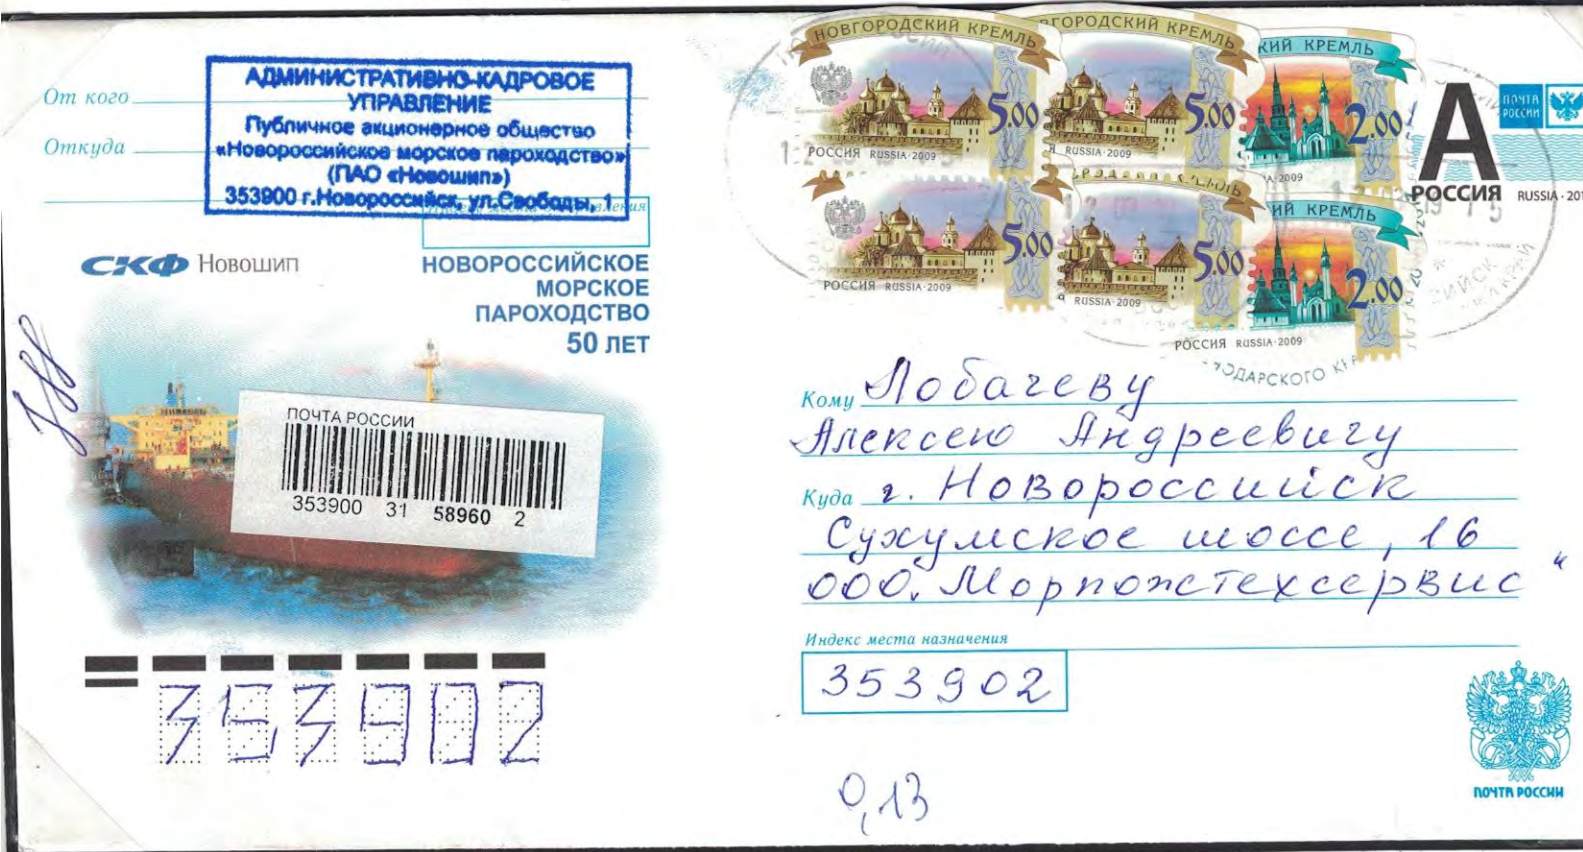 От кого
Откуда
АДМИНИСТРАТИВНО-КАДРОВОЕ
УПРАВЛЕНИЕ
Публичное акционерное общество
«Новороссийское морское пароходство»
(ПАО «Новошип»)
353900 г.Новороссийск, ул.Свободы, 1
СКФ Новошип
НОВОРОССИЙСКОЕ
МОРСКОЕ
ПАРОХОДСТВО
50 ЛЕТ
ПОЧТА РОССИИ
353900 31 58960 2
353902
НОВГОРОДСКИЙ КРЕМЛЬ
5.00
РОССИЯ RUSSIA·2009
ГОРОДСКИЙ КРЕМЛЬ
5.00
Я RUSSIA·2009
КИЙ КРЕМЛЬ
2.00
A·2009
5.00
РОССИЯ RUSSIA·2009
5.00
RUSSIA·2009
КИЙ КРЕМЛЬ
2.00
РОССИЯ RUSSIA·2009
А
РОССИЯ
RUSSIA·201
ПОЧТА
РОССИИ
Кому Лобачеву
Алексею Андреевичу
Куда г. Новороссийск
Сухумское шоссе, 16
ООО „Морпожстехсервис“
Индекс места назначения
353902
0,13
ПОЧТА РОССИИ